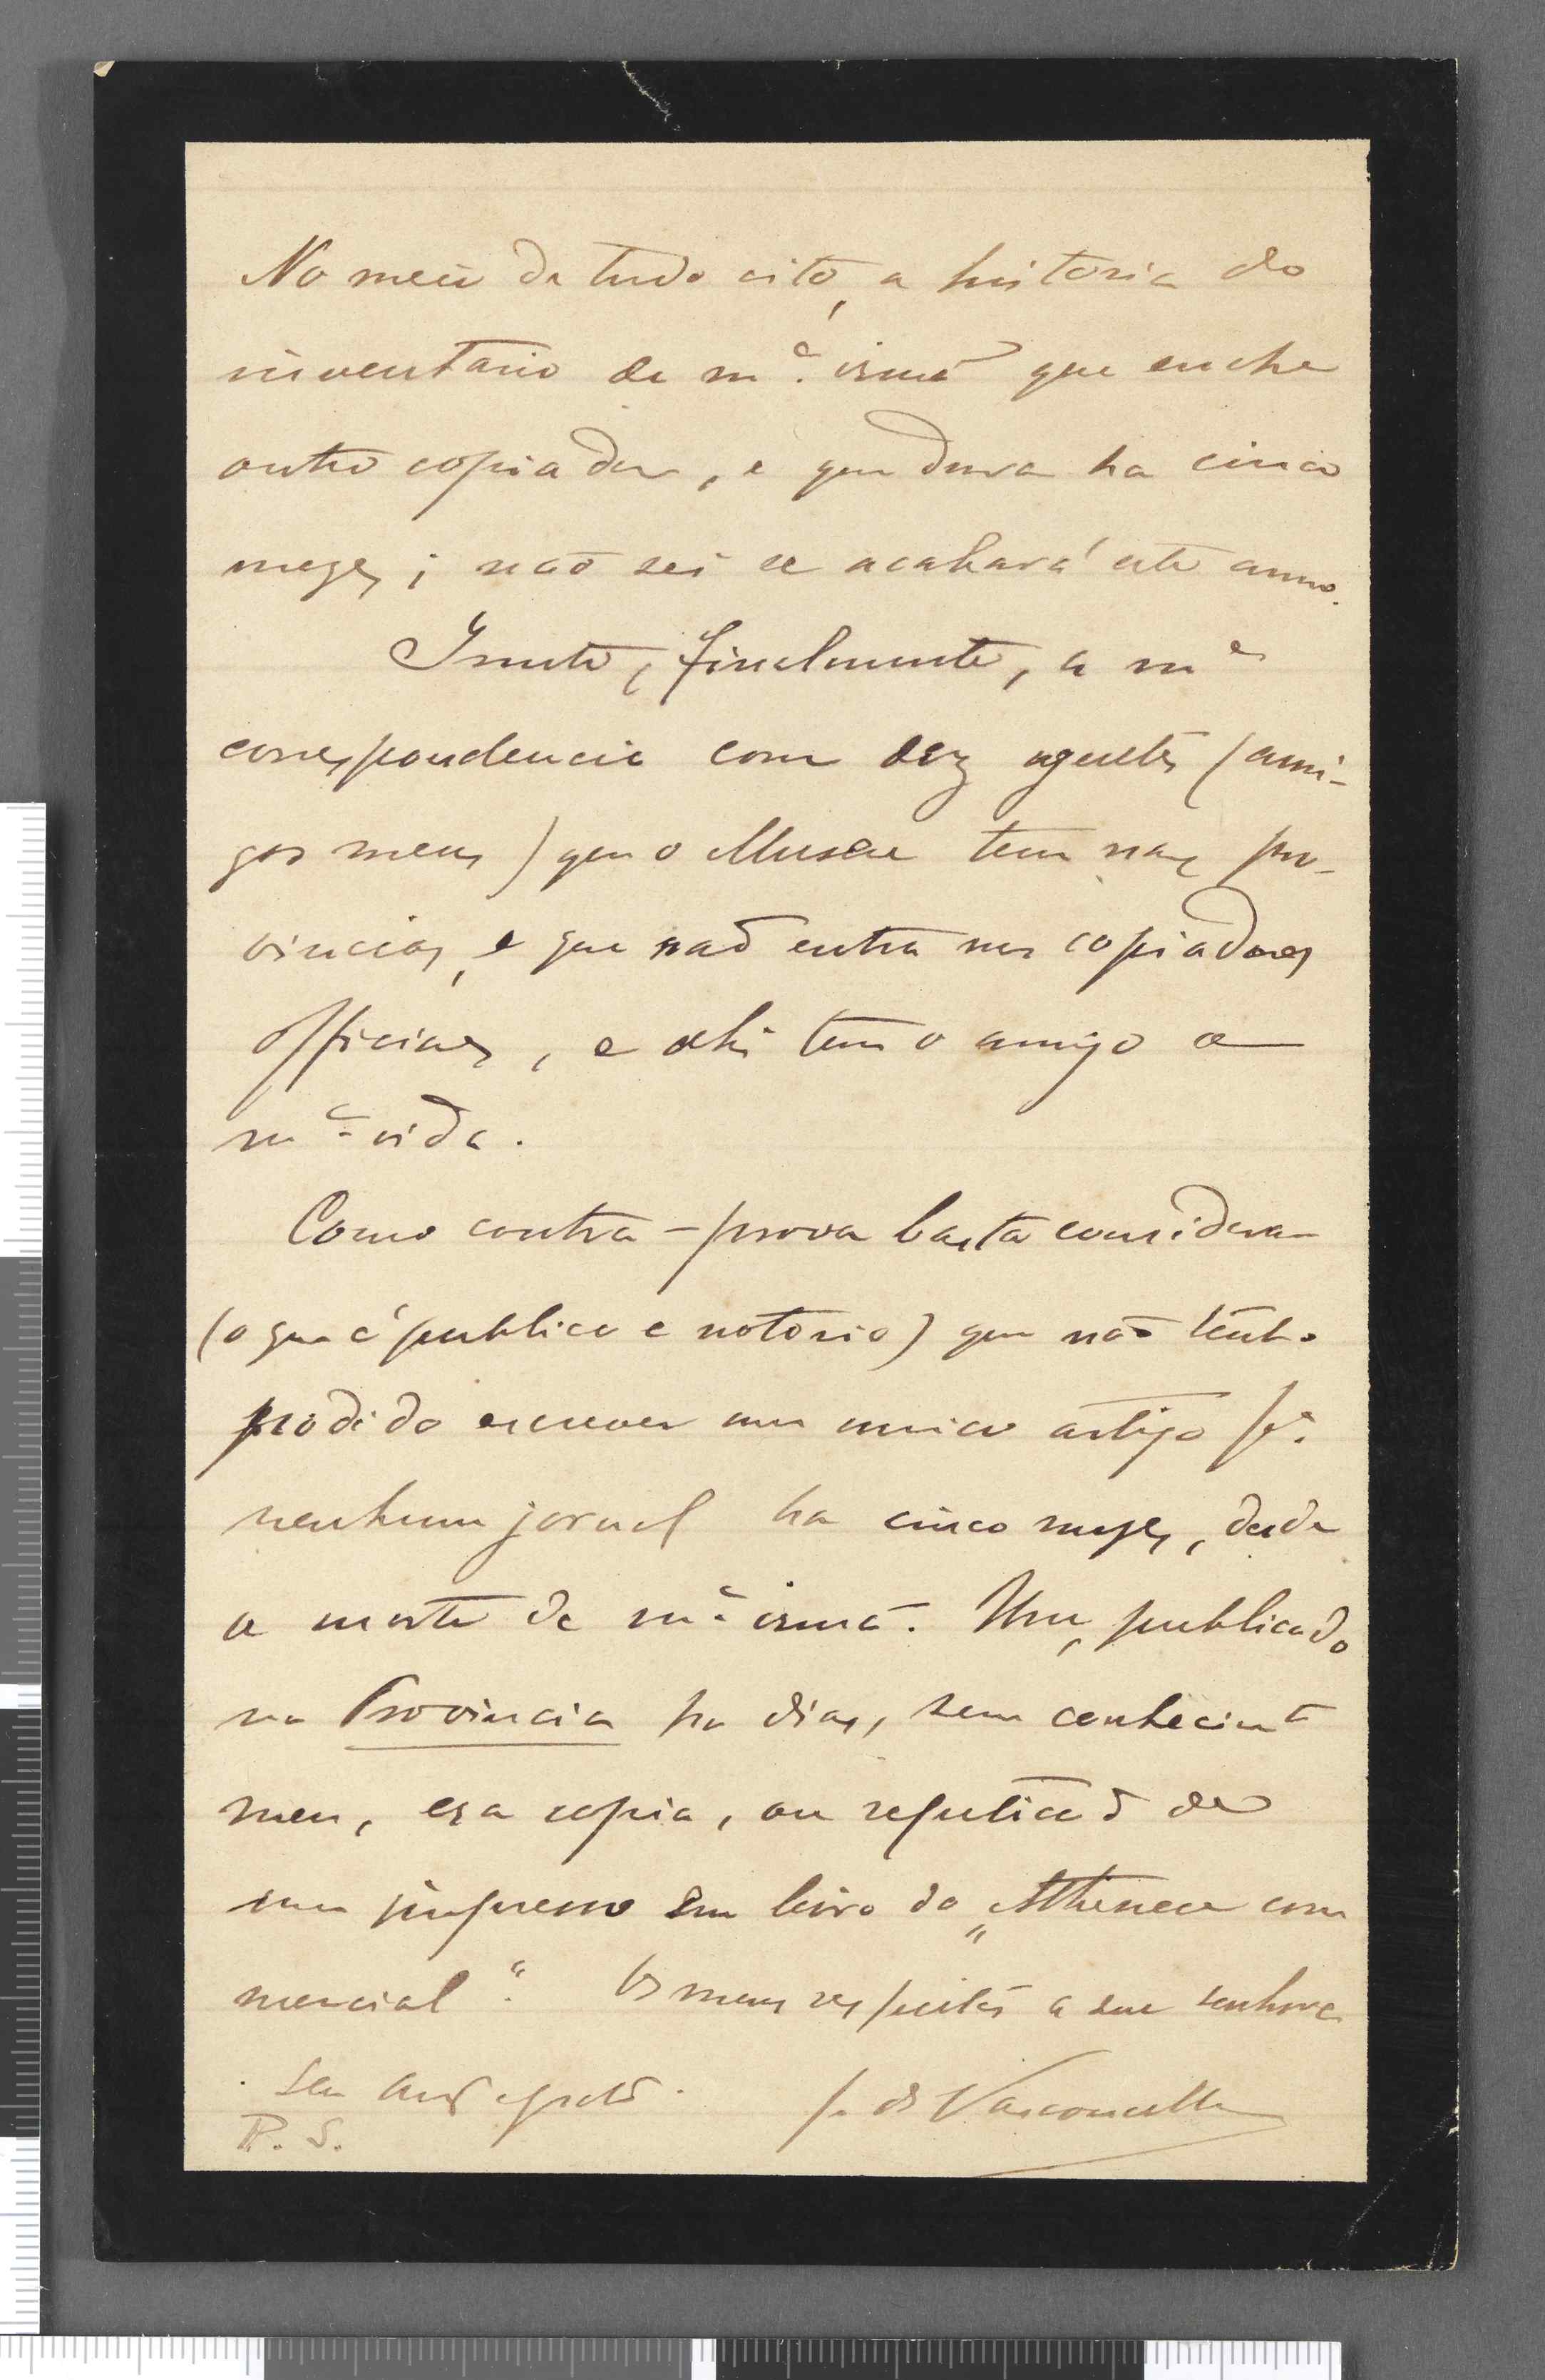 No meio de tudo isto, a historia do
inventario de m.ª irmã que enche
outro copiador, e que dura ha cinco
mezes; não sei se acabará este anno.
Junte, finalmente, a mª
correspondencia com dez agentes (ami-
gos meus) que o Museu tem nas pro-
vincias, e que não entra nos copiadores
officiaes, e ahi tem o amigo a
m.ª vida.
Como contra-prova basta considerar
(o que é publico e notorio) que não tenho
podido escrever um unico artigo p.ª
nenhum jornal ha cinco mezes, desde
a morte de m.ª irmã. Um, publicado
na Provincia ha dias, sem conhecimto
meu, era copia, ou repetição de
um impresso em livro do „Atheneu com
mercial“. Os meus respeitos a sua senhora
Seu amº grato.
J. de Vasconcellos
P. S.